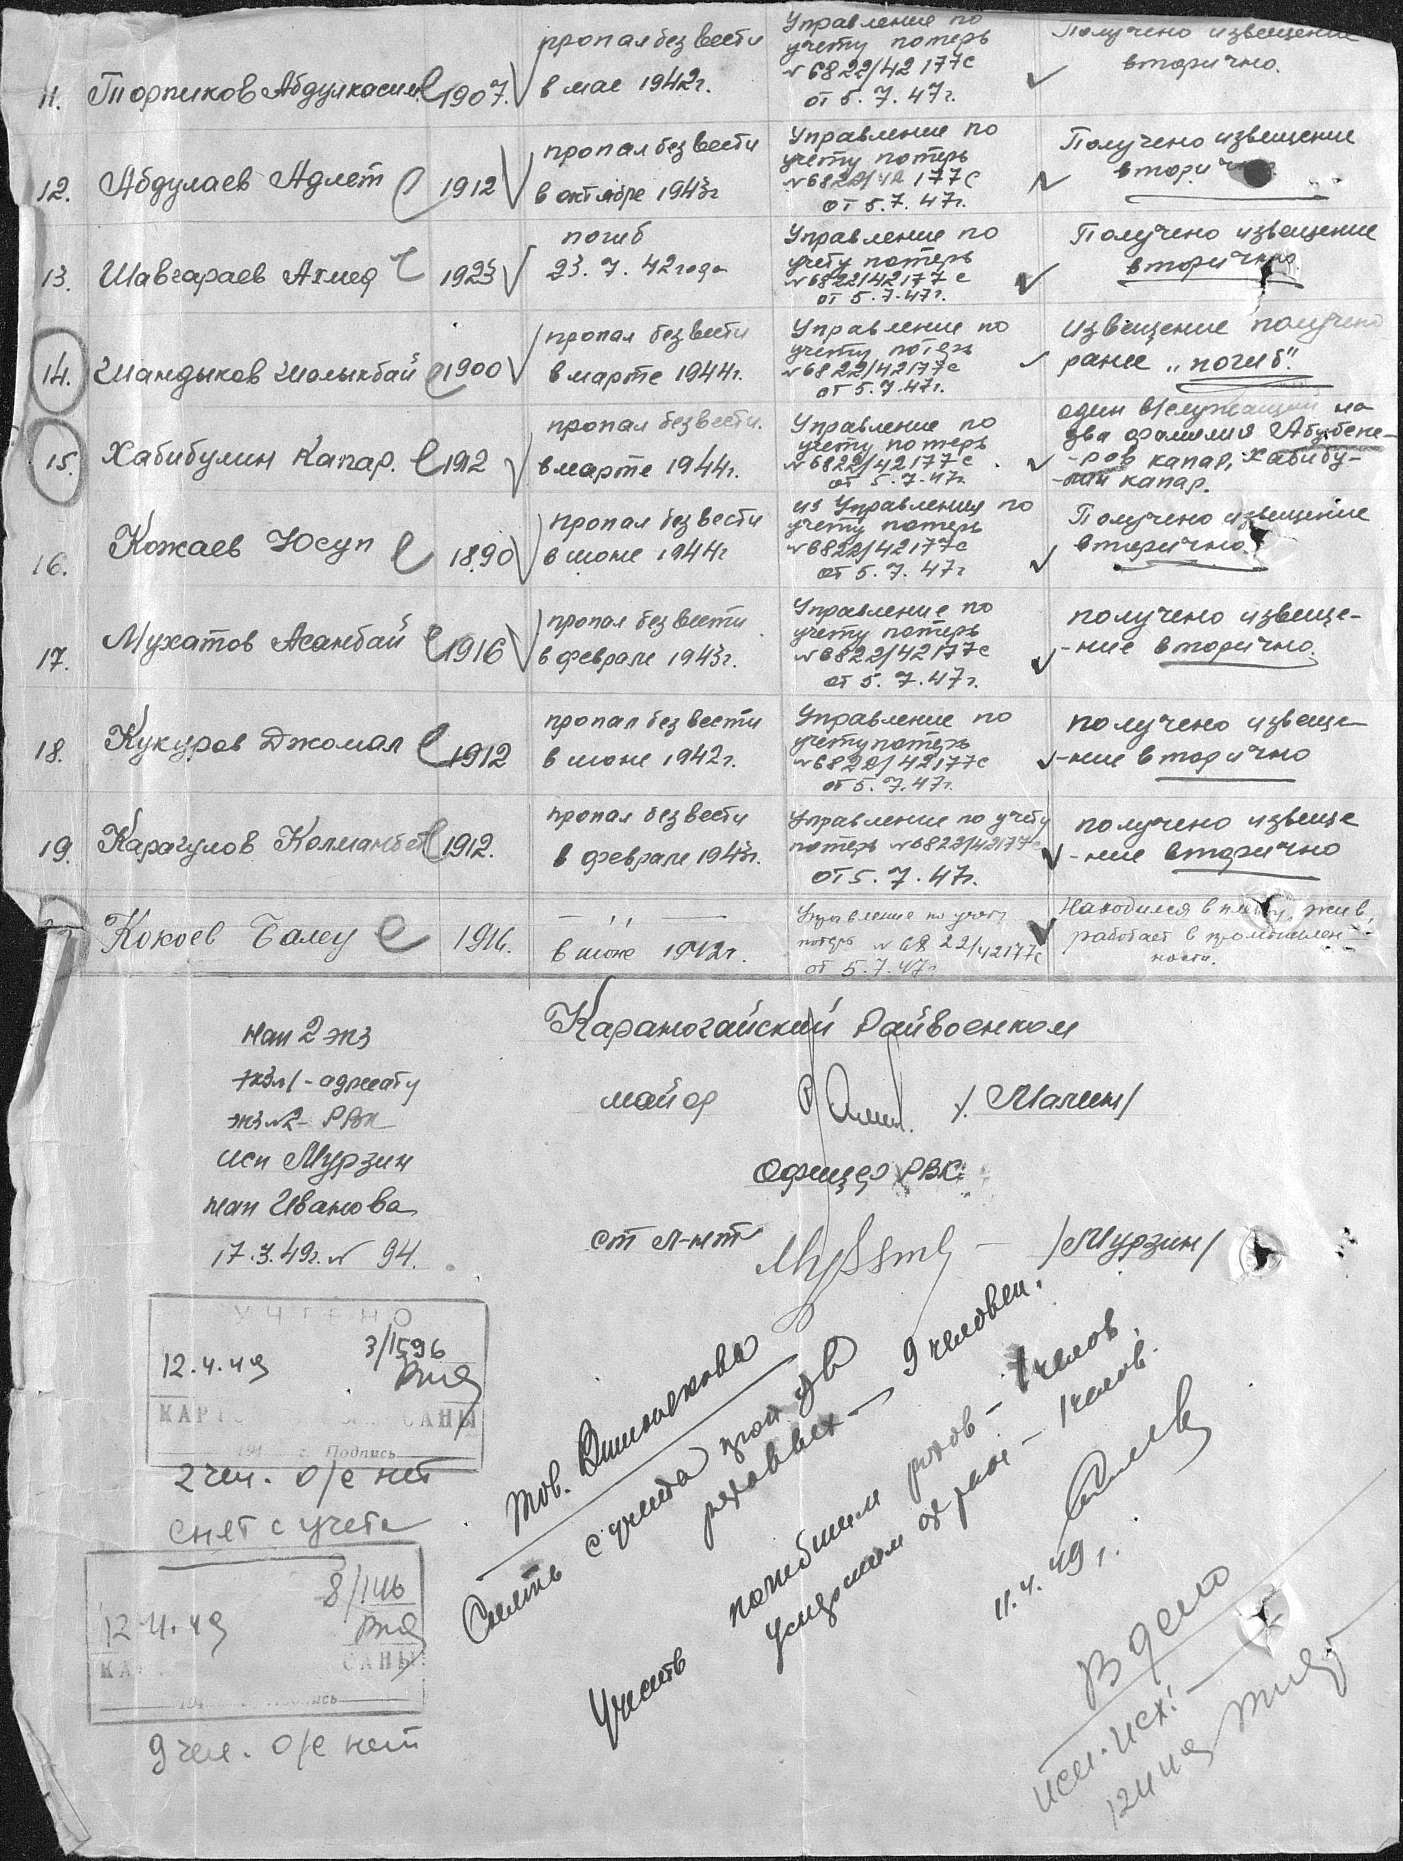 11. Торпиков Абдулкасим 1907.
пропал без вести
в мае 1942г.
Управление по
учету потерь
№6822/42177с
от 5.7.47г.
Получено извещение
вторично.
12. Абдулаев Адлет 1912
пропал без вести
в октябре 1943г
Управление по
учету потерь
№6822/42177с
от 5.7.47г.
Получено извещение
13. Шавгараев Ахмед 1923
погиб
23.7.42 года
Управление по
учету потерь
№6822/42177с
от 5.7.47г.
Получено извещение
вторично
14. Шандыков Шолыкбай 1900
пропал без вести
в марте 1944г.
Управление по
учету потерь
№6822/42177с
от 5.7.47г.
извещение получено
ранее „погиб".
15. Хабибулин Капар. 1912
пропал без вести.
в марте 1944г.
Управление по
учету потерь
№6822/42177с
от 5.7.47г
один военнослужащий на
два фамилия Абубеке-
-ров капар, Хабибу-
-лин капар.
16. Кожаев Юсуп 1890
пропал без вести
в июне 1944г
из Управления по
учету потерь
№6822/42177с
от 5.7.47г
Получено извещение
вторично.
17. Мухатов Асанбай 1916
пропал без вести
в феврале 1943г.
Управление по
учету потерь
№6822/42177с
от 5.7.47г.
получено извеще-
-ние вторично.
18. Кукуров Джомал 1912
пропал без вести
в июне 1942г.
Управление по
учету потерь
№6822/42177с
от 5.7.47г.
получено извеще-
-ние вторично
19. Карагулов Колманбет 1912.
пропал без вести
в феврале 1943г.
Управление по учету
потерь №6822/42177с
от 5.7.47г.
получено извеще
-ние вторично
Кокоев Балеу 1916.
— " —
в июне 1942г.
Управление по учету
потерь №6822/42177с
от 5.7.47г
Находился в плену, жив,
работает в промышлен
ности.
Караногайский Райвоенком
майор /Малин/
Офицер РВК:
ст л-нт /Мурзин/
нап 2 экз
экз №1 - адресату
экз №2 - РВК
исп Мурзин
нап Иванова
17.3.49г. № 94.
УЧТЕНО
3/1596
12.4.49
194 г. Подпись
2 чел. о/с нет
снят с учета
8/146
12.4.49
9 чел. о/с нет
тов.
Снять с учета
рядовых — 9 человек.
Учесть погибшим рядов — 1 челов.
умершим от ран — 1 челов.
11.4.49г.
В дело